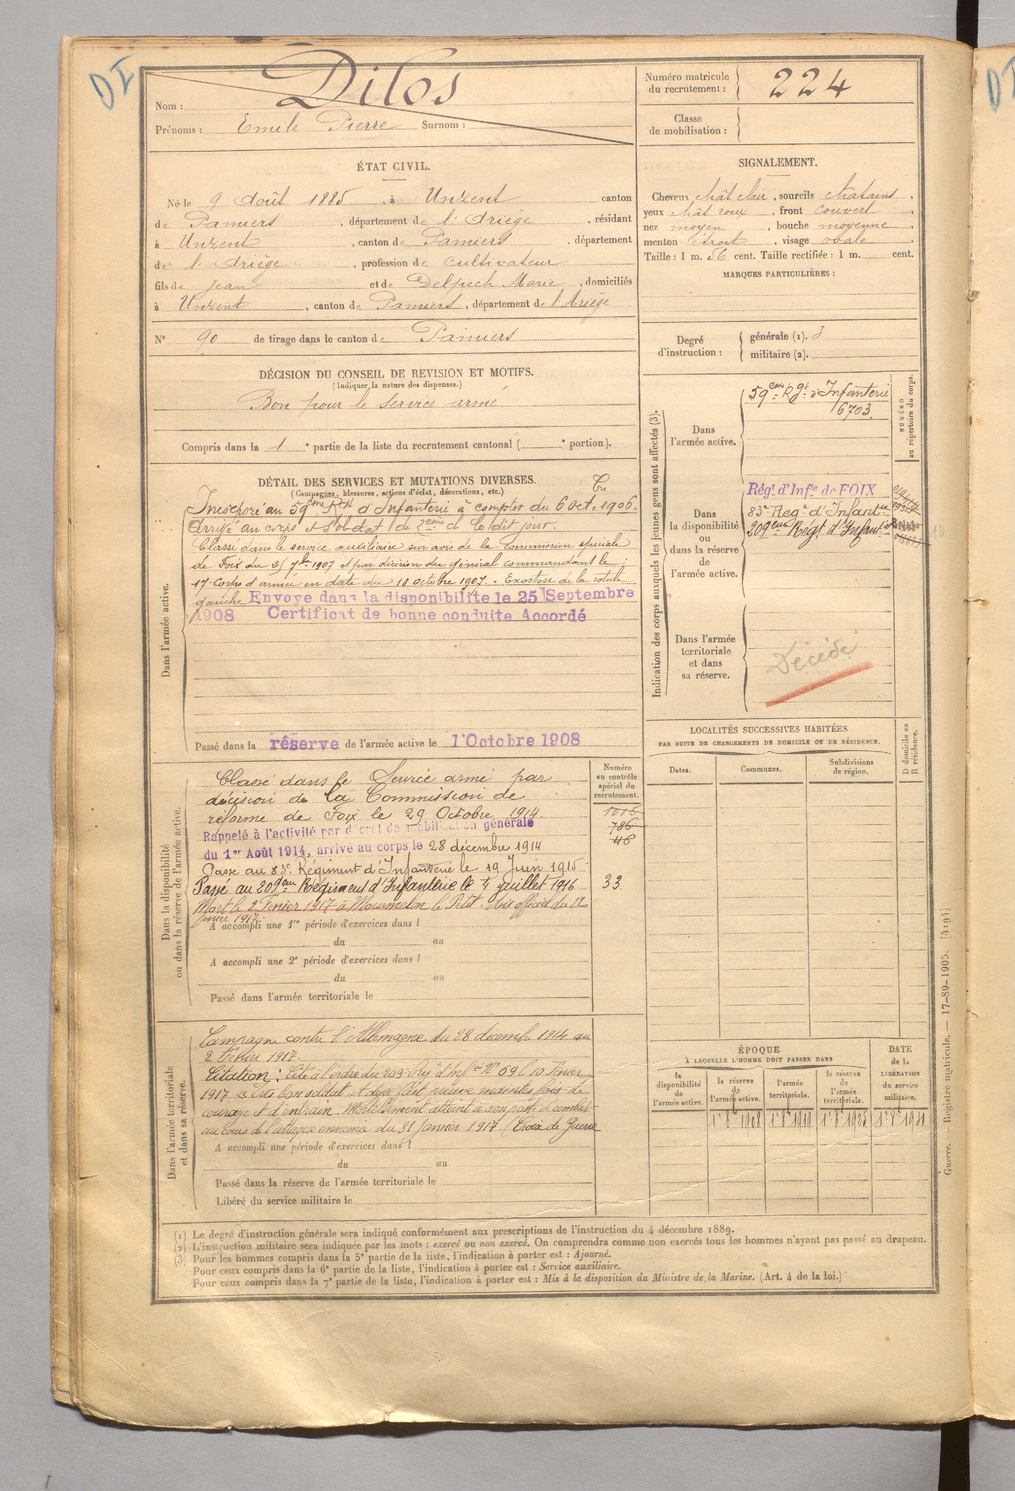 DI
Nom : Dilos
Prénoms : Emile Pierre Surnom :
Numéro matricule du recrutement : 224
Classe de mobilisation :
ÉTAT CIVIL.
Né le 9 Août 1885, à Unzent canton
de Pamiers, département de l'Ariège, résidant
à Unzent, canton de Pamiers, département
de l'Ariège, profession de cultivateur
fils de Jean et de Delpech Marie, domiciliés
à Unzent, canton de Pamiers, département de l'Ariège
N° 90 de tirage dans le canton de Pamiers
SIGNALEMENT.
Cheveux chât clair, sourcils châtains,
yeux chât roux, front couvert,
nez moyen, bouche moyenne,
menton étroit, visage ovale
Taille : 1 m. 56 cent. Taille rectifiée : 1 m. cent.
MARQUES PARTICULIÈRES :
Degré d'instruction : générale (1). 3
militaire (2).
DÉCISION DU CONSEIL DE REVISION ET MOTIFS.
(Indiquer la nature des dispenses.)
Bon pour le service armé
Compris dans la 1e partie de la liste du recrutement cantonal ( e portion).
DÉTAIL DES SERVICES ET MUTATIONS DIVERSES.
(Campagnes, blessures, actions d'éclat, décorations, etc.)
Dans l'armée active.
Incorporé au 59ème Rgt d'Infanterie à compter du 6 oct. 1906.
Arrivé au corps et soldat de 2ème cl. le dit jour.
Classé dans le service auxiliaire sur avis de la Commission spéciale
de Foix du 5 7bre 1907 et par décision du général commandant le
17e Corps d'armée en date du 18 octobre 1907. Exostose de la rotule
gauche Envoyé dans la disponibilité le 25 Septembre
1908 Certificat de bonne conduite Accordé
Passé dans la réserve de l'armée active le 1 Octobre 1908
Indication des corps auxquels les jeunes gens sont affectés (3).
NUMÉRO au répertoire du corps.
Dans l'armée active.
59ème Rgt d'Infanterie
6703
Dans la disponibilité ou dans la réserve de l'armée active.
Régt d'Infie de FOIX
83e Regt d'Infantie
209ème Régt d'Infantie
Dans l'armée territoriale et dans sa réserve.
Décédé
LOCALITÉS SUCCESSIVES HABITÉES
PAR SUITE DE CHANGEMENTS DE DOMICILE OU DE RÉSIDENCE.
D domicile ou R résidence.
Dates.
Communes.
Subdivisions de région.
Dans la disponibilité ou dans la réserve de l'armée active.
Numéro au contrôle spécial du recrutement.
Classé dans le Service armé par
décision de la Commission de
réforme de Foix le 29 Octobre 1914.
Rappelé à l'activité par décret de mobilisation générale
du 1er Août 1914, arrivé au corps le 28 décembre 1914
Passé au 83e Régiment d'Infanterie le 19 Juin 1915
Passé au 209ème Régiment d'Infanterie le 4 juillet 1916
33
Mort le 2 Février 1917 à Mourmelon le Petit. Avis officiel du 22
A accompli une 1re période d'exercices dans l
du au
A accompli une 2e période d'exercices dans l
du au
Passé dans l'armée territoriale le
Dans l'armée territoriale et dans sa réserve.
Campagne contre l'Allemagne du 28 décemb. 1914 au
2 Février 1917.
Citation : Cité à l'ordre du 209 Rgt d'Infie N° 69 le 10 Févier
1917 « Très bon soldat
courage et d'entrain. Mortellement atteint à son poste de combat
au cours de l'attaque ennemie du 31 Janvier 1917 (Croix de Guerre
A accompli une période d'exercices dans l
du au
Passé dans la réserve de l'armée territoriale le
Libéré du service militaire le
ÉPOQUE
À LAQUELLE L'HOMME DOIT PASSER DANS
la disponibilité de l'armée active.
la réserve de l'armée active.
l'armée territoriale.
la réserve de l'armée territoriale.
DATE de la LIBÉRATION du service militaire.
Guerre. — Registre matricule. — 17-89-1905. [4194]
(1) Le degré d'instruction générale sera indiqué conformément aux prescriptions de l'instruction du 4 décembre 1889.
(2) L'instruction militaire sera indiquée par les mots : exercé ou non exercé. On comprendra comme non exercés tous les hommes n'ayant pas passé au drapeau.
(3) Pour les hommes compris dans la 5e partie de la liste, l'indication à porter est : Ajourné.
Pour ceux compris dans la 6e partie de la liste, l'indication à porter est : Service auxiliaire.
Pour ceux compris dans la 7e partie de la liste, l'indication à porter est : Mis à la disposition du Ministre de la Marine. (Art. 4 de la loi.)